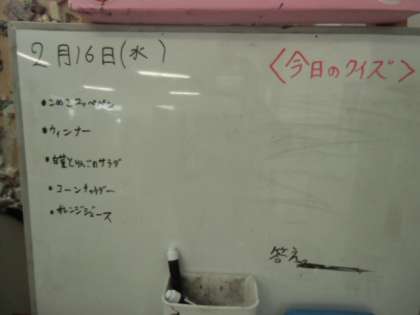 2月16日(水)
<今日のクイズ>
・こめこコッペパン
・ウィンナー
・白菜とりんごのサラダ
・コーンチャウダー
・オレンジジュース
答え。